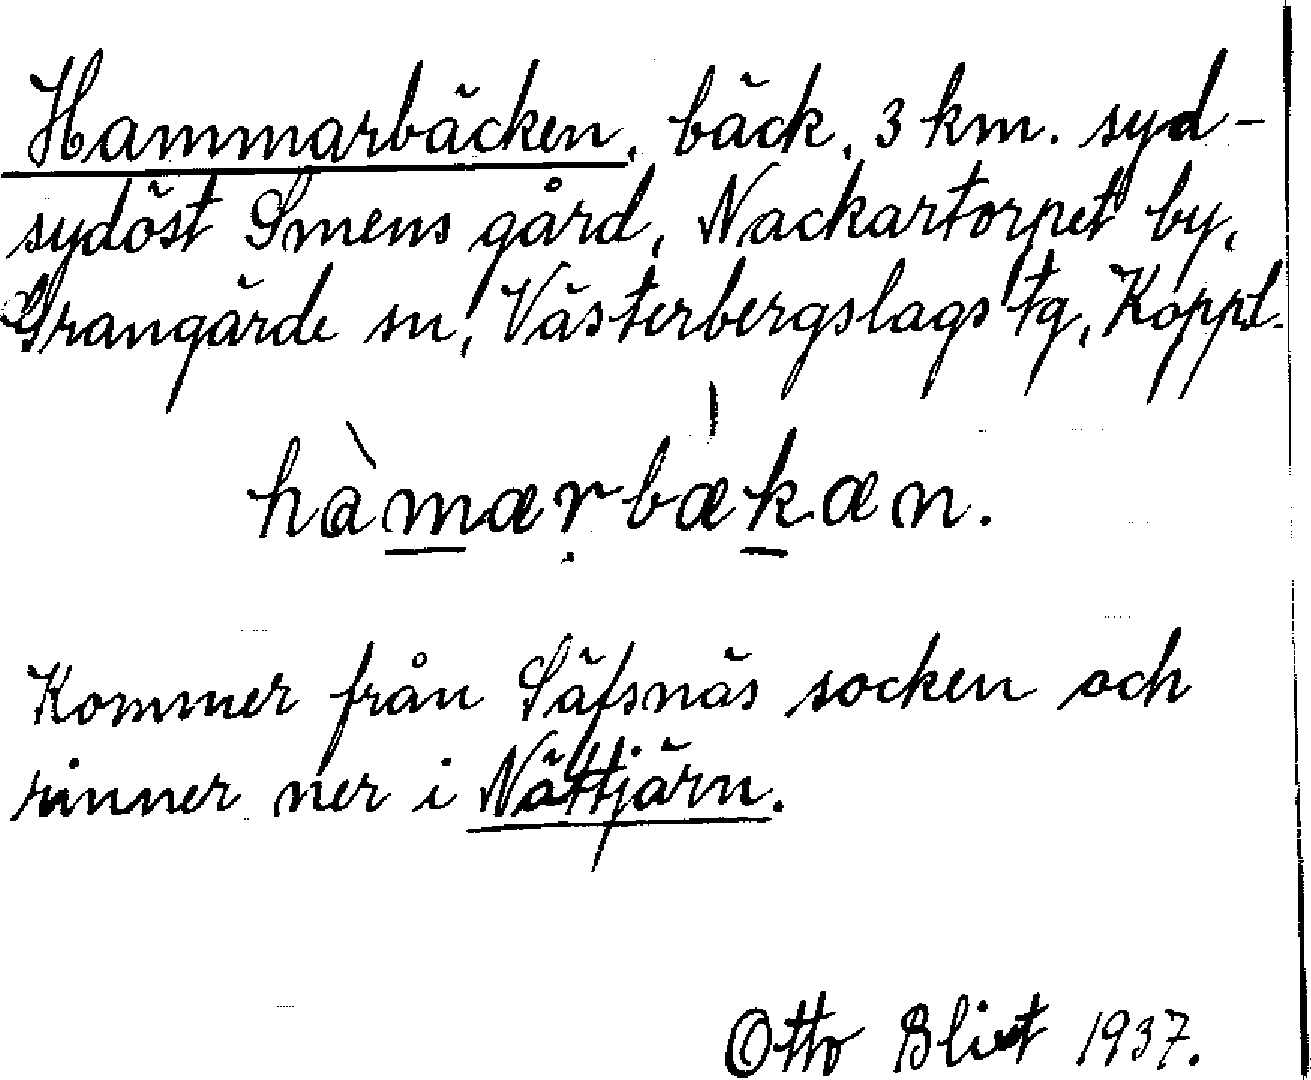 Hammarbäcken, bäck, 3 km. syd-
sydöst Smens gård, Nackartorpet by,
Grangärde sn, Västerbergslags tg, Koppl.
hàmærbækæn.
Kommer från Säfsnäs socken och
rinner ner i Nättjärn.
Otto Blixt 1937.